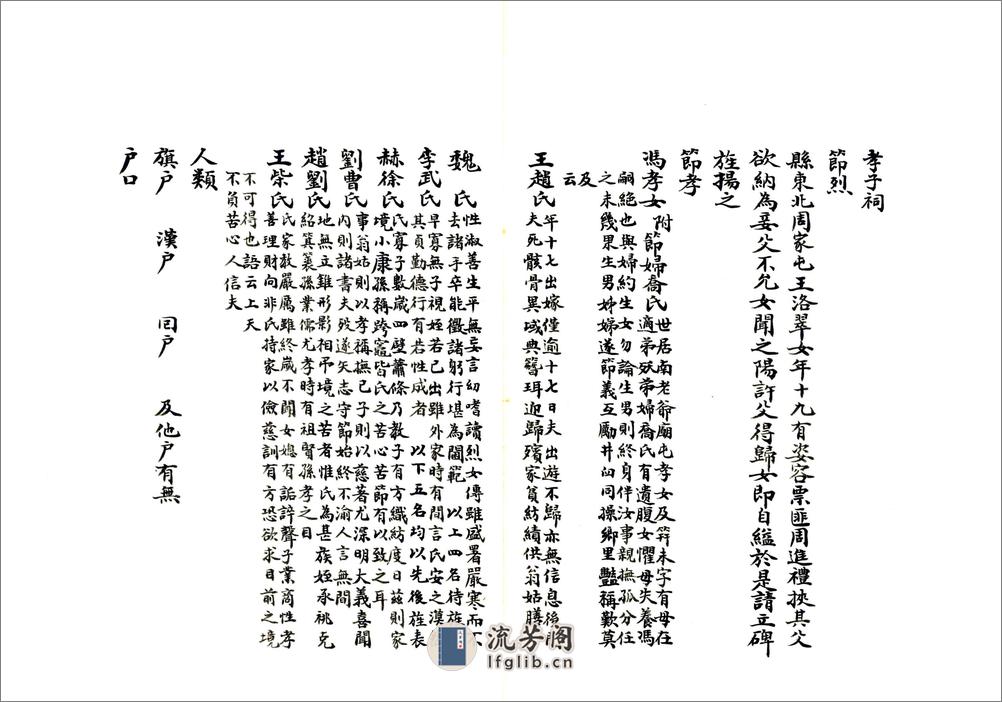 孝子祠
節烈
縣東北周家屯王洛翠女年十九有姿容票匪周進禮挾其父
欲納為妾父不允女聞之陽許父得歸女即自縊於是請立碑
旌揚之
節孝
馮孝女附節婦喬氏世居南老爺廟屯孝女及筓未字有母在
適弟歿弟婦喬氏有遺腹女懼母失養馮
嗣絕也與婦約生女勿論生男則終身伴汝事親撫孤分任
之未幾果生男姊婦遂節義互勵井臼同操鄉里豔稱歎莫
及
云
王趙氏年十七出嫁僅逾十七日夫出遊不歸亦無信息後
夫死骸骨異域典簪珥迎歸殯家貧紡績供翁姑膳
魏氏性淑善生平無妄言幼嗜讀烈女傳雖盛暑嚴寒而不
去諸手卒能徵諸躬行堪為閫範 以上四名待旌
李武氏早寡無子視姪若己出雖外家時有間言氏安之漠
其貞勤德行有若性成者 以下五名均以先後旌表
赫徐氏氏寡子數歲四壁蕭條乃教子有方織紡度日茲則家
境小康孫稱跨竈皆氏之苦心苦節有以致之耳
劉曹氏事翁姑則以孝稱撫己子則以慈著尤深明大義喜聞
內則諸書夫歿遂矢志守節始終不渝人言無間
趙劉氏地無立錐形影相弔境之苦者惟氏為甚族姪承祧克
紹箕裘孫業儒尤孝時有祖賢孫孝之目
王柴氏氏家教嚴厲雖終歲不聞女媳有詬誶聲子業商性孝
善理財向非氏持家以儉慈訓有方恐欲求目前之境
不可得也語云上天
不負苦心人信夫
人類
旗戶 漢戶 回戶 及他戶有無
戶口
流芳阁
lfglib.cn